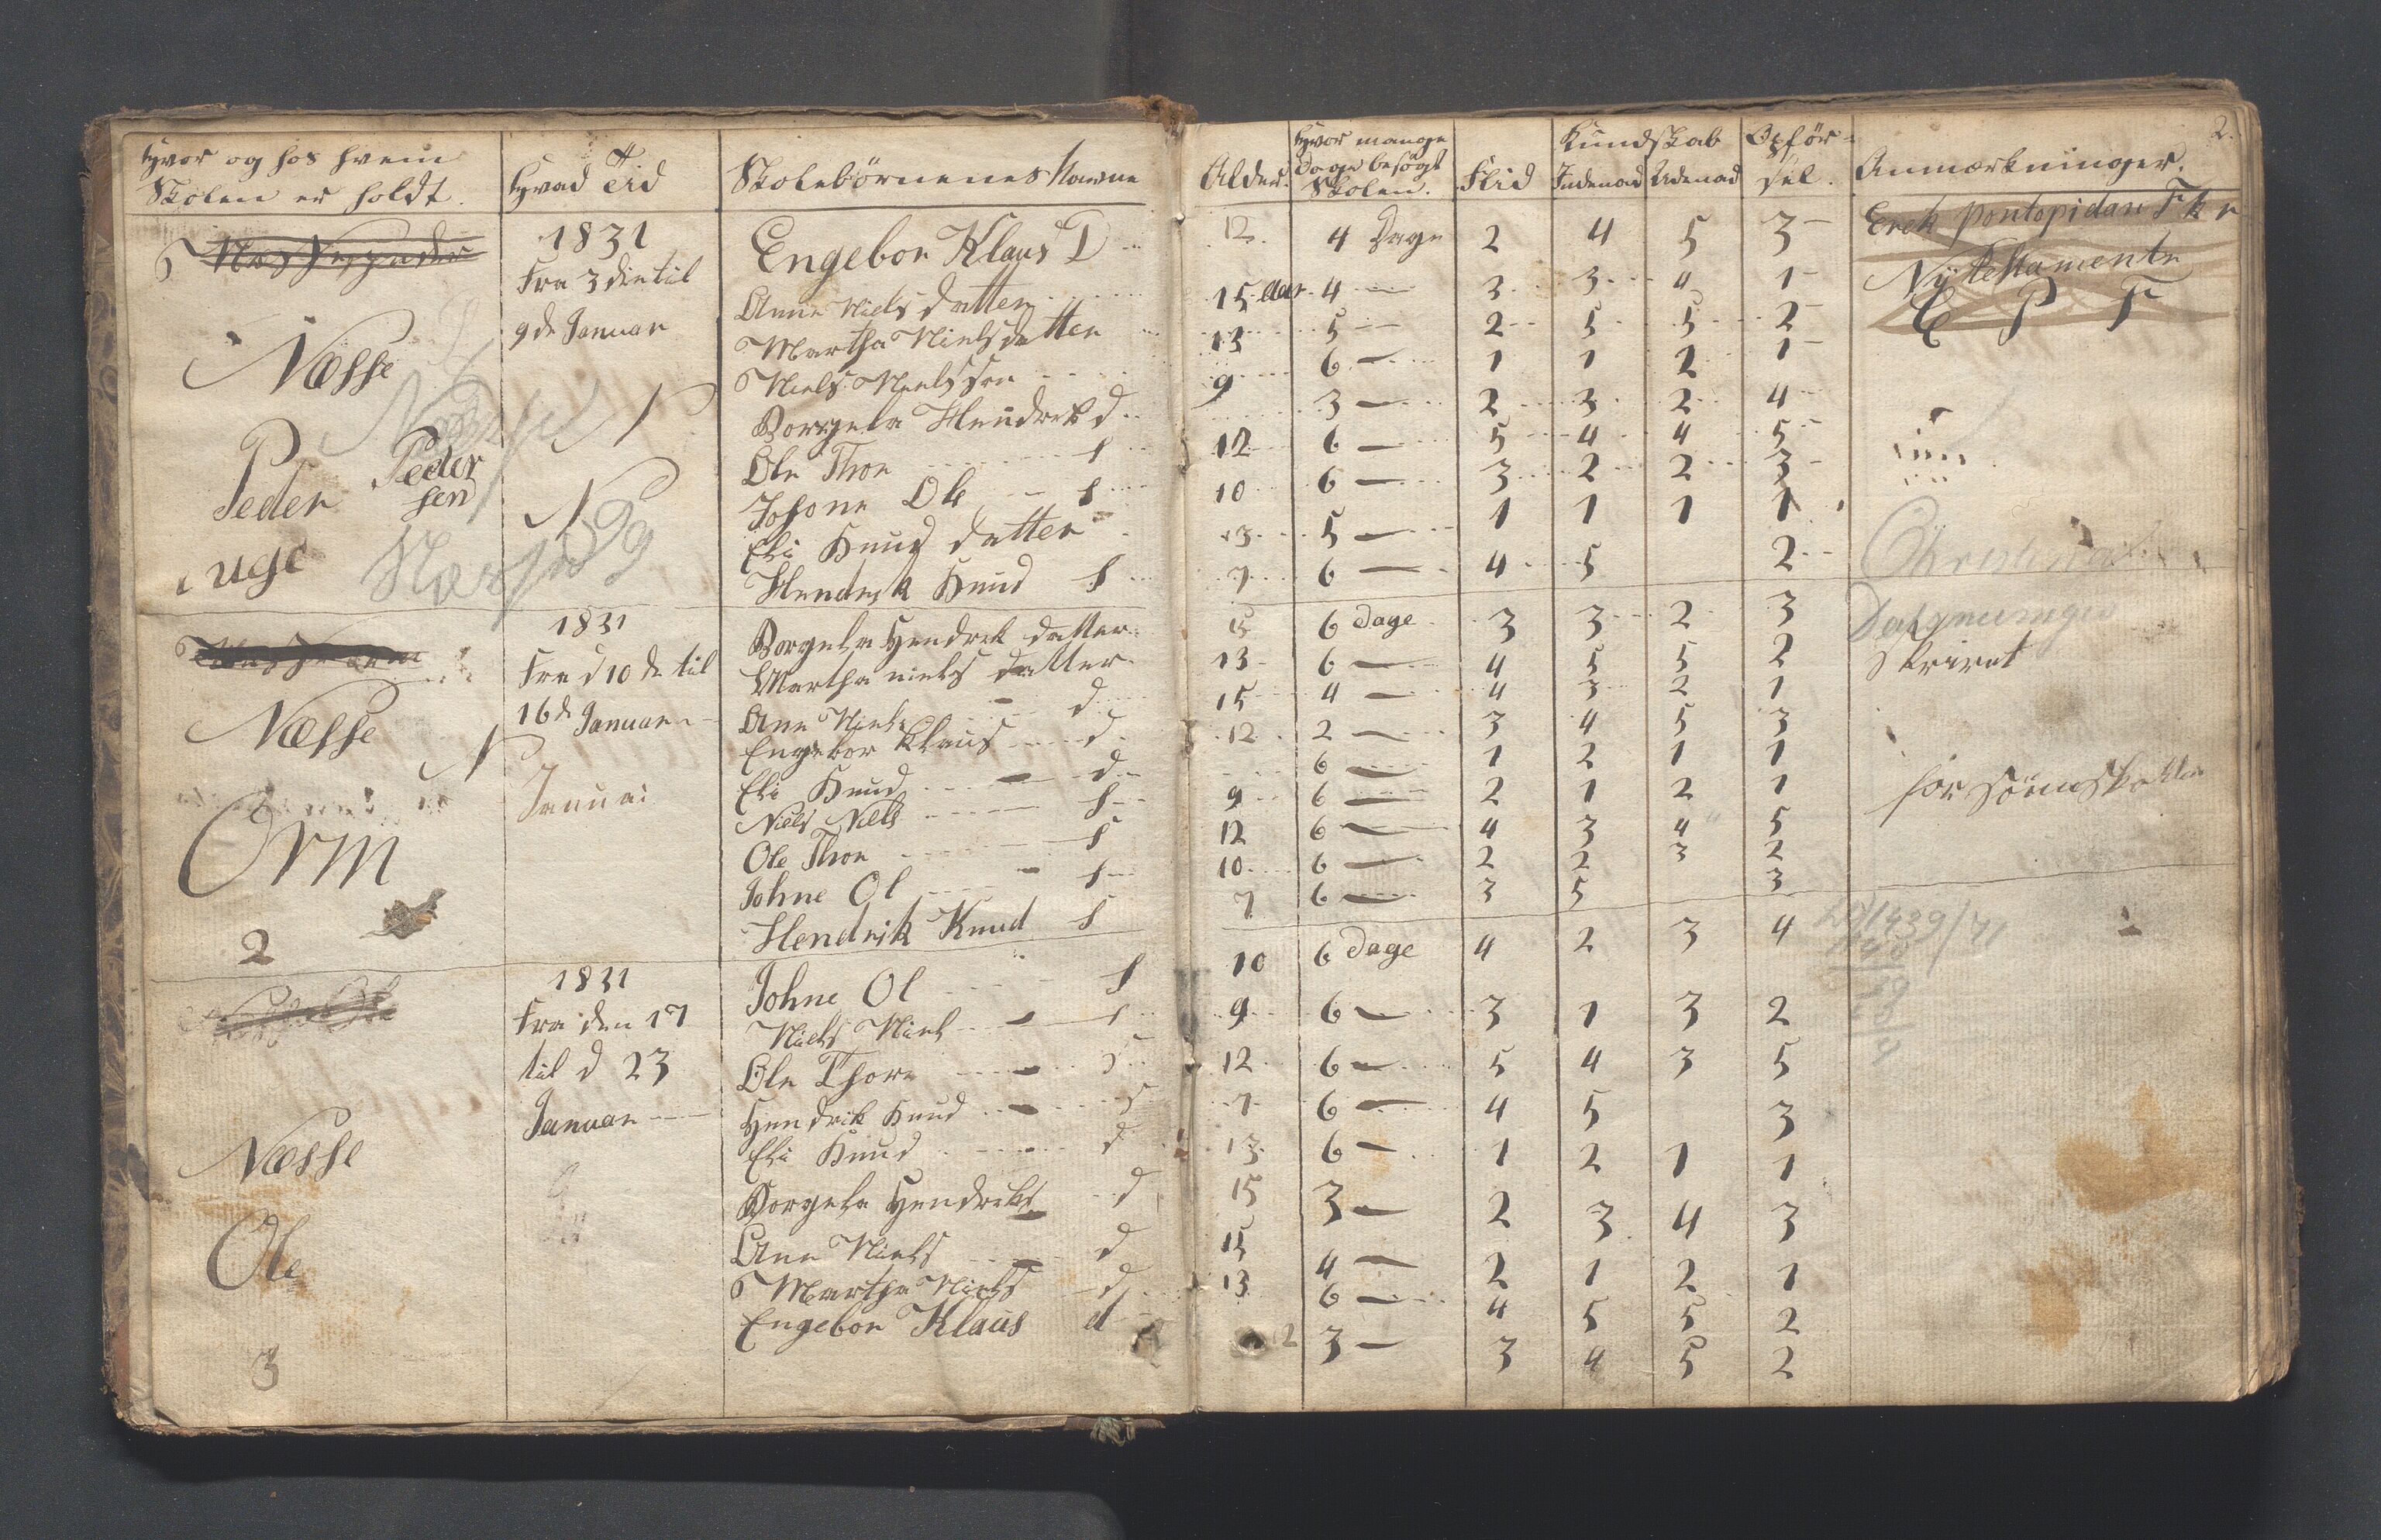 Hvor og hos hvem
Skolen er holdt.
Hvad Tid
Skolebörnenes Navne
Alder.
Hvor mange
Dage besögt
Skolen.
Flid
Kundskab
Indenad Udenad
Opför-
sel.
Anmærkninger.
2.
Næsse
Peder Peder
sen
uge
1831
Fra 3die til
9de Januar
Engebor Klaus D 12. 4 Dage 2 4 5 3
Anne Niels datter 15 Aar 4 3 3 4 1
Martha Nielsdatter 13 5 2 5 5 2
Niels Nielssøn 9 6 1 1 2 1
Borgela Hendrek d 3 2 3 2 4
Ole Thor s 12 6 5 4 4 5
Johone Ole s 10 6 3 2 2 3
Eli Knud datter 13 5 1 1 1 1
Hendrek Knud s 7 6 4 5 2
Erek Pontopidan F k r
Ny Testamente
E P F
Næsse
Orm
2
1831
Fra d 10de til
16de Januar
Janua
Borgela Hendrek datter 15 6 Dage 3 3 2 3
Martha niels datter 13 6 4 5 5 2
Ane Niels d 15 4 4 3 2 1
Engebor Klaus d 12 2 3 4 5 3
Eli Knud d 6 1 2 1 1
Niels Niels s 9 6 2 1 2 1
Ole Thor s 12 6 4 3 4 5
Johne Ol s 10 6 2 2 3 2
Hendrik Knud s 7 6 3 5 3
Skrivet
Næsse
Ole
3
1831
Fra den 17
til d 23
Januar
Johne Ol s 10 6 Dage 4 2 3 4
Niels Niels s 9 6 3 1 3 2
Ole Thore s 12 6 5 4 3 5
Hendrik Knud s 7 6 4 5 3
Eli Knud d 13 6 1 2 1 1
Borgela Hendreks d 15 3 2 3 4 3
Ane Niels d 15 4 2 1 2 1
Martha Niels d 13 6 4 5 5 2
Engebor Klaus d 2 3 3 4 5 2